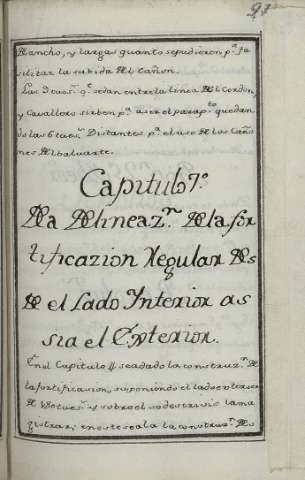 97
De ancho, y largas quanto se pudieron p.ª fa
silitar la subida Del Cañon.
Las 3 tues.ˢ q.ᵉ sedan entre la linea Del Cordon,
y Cavallero sirben p.ª aser el parap.ᵗᵒ quedan
do las 6 tues.ˢ Distantes p.ª el uso De los Caño
nes Del baluarte.
Capitulo 7.º
De a Delineaz.ⁿ De la for
tificazion Regular Des
De el Lado Ynterior as
sia el Exterior.
En el Capitulo 4 se a dado la construz.ⁿ De
la fortificasion, suponiendo el lado exterior
De tues.ˢ y sobre el se descrivio la ma
gistrar; en este se a la construz.ⁿ Des